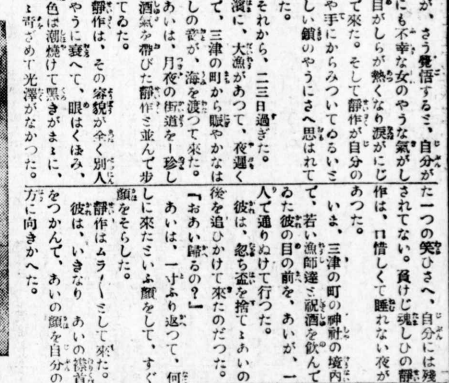 が、さう覺悟するミ、自分が
にも不幸な女のやうな氣がし
目がしらが熱くなり涙がにじ
で來た。そして靜作が自分の
や手にからみついてゐるいミ
しい鎖のやうにさへ思はれて
た。
それから、二三日過ぎた。
濱に、大漁があつて、夜遲く
で、三津の町から賑やかなは
しの音が、海を渡つて來た。
あいは、月夜の街道を―珍し
酒氣を帶びた靜作ミ並んで步
てゐた。
靜作は、その容貌が全く別人
やうに衰へて、眼はくぼみ、
色は潮燒けて黑きがまゝに、
ミ靑ざめて光澤がなかつた。
た一つの笑ひさへ、自分には殘
されてない。負けじ魂しひの靜
作は、口惜しくて睡れない夜が
あつた。
いま、三津の町の神社の境內
で、若い漁師達ミ祝酒を飮んで
ゐた彼の目の前を、あいが、一
人で通りぬけて行つた。
彼は、忽ち盃を捨てゝあいの
後を追ひかけて來たのだつた。
『おあい歸るの？』
あいは、一寸ふり返つて、何
しに來たミいふ顏をして、すぐ
顏をそらした。
靜作はムラ〱ミして來た。
彼は、いきなり あいの襟首
をつかんで、あいの顏を自分の
方に向きかへた。